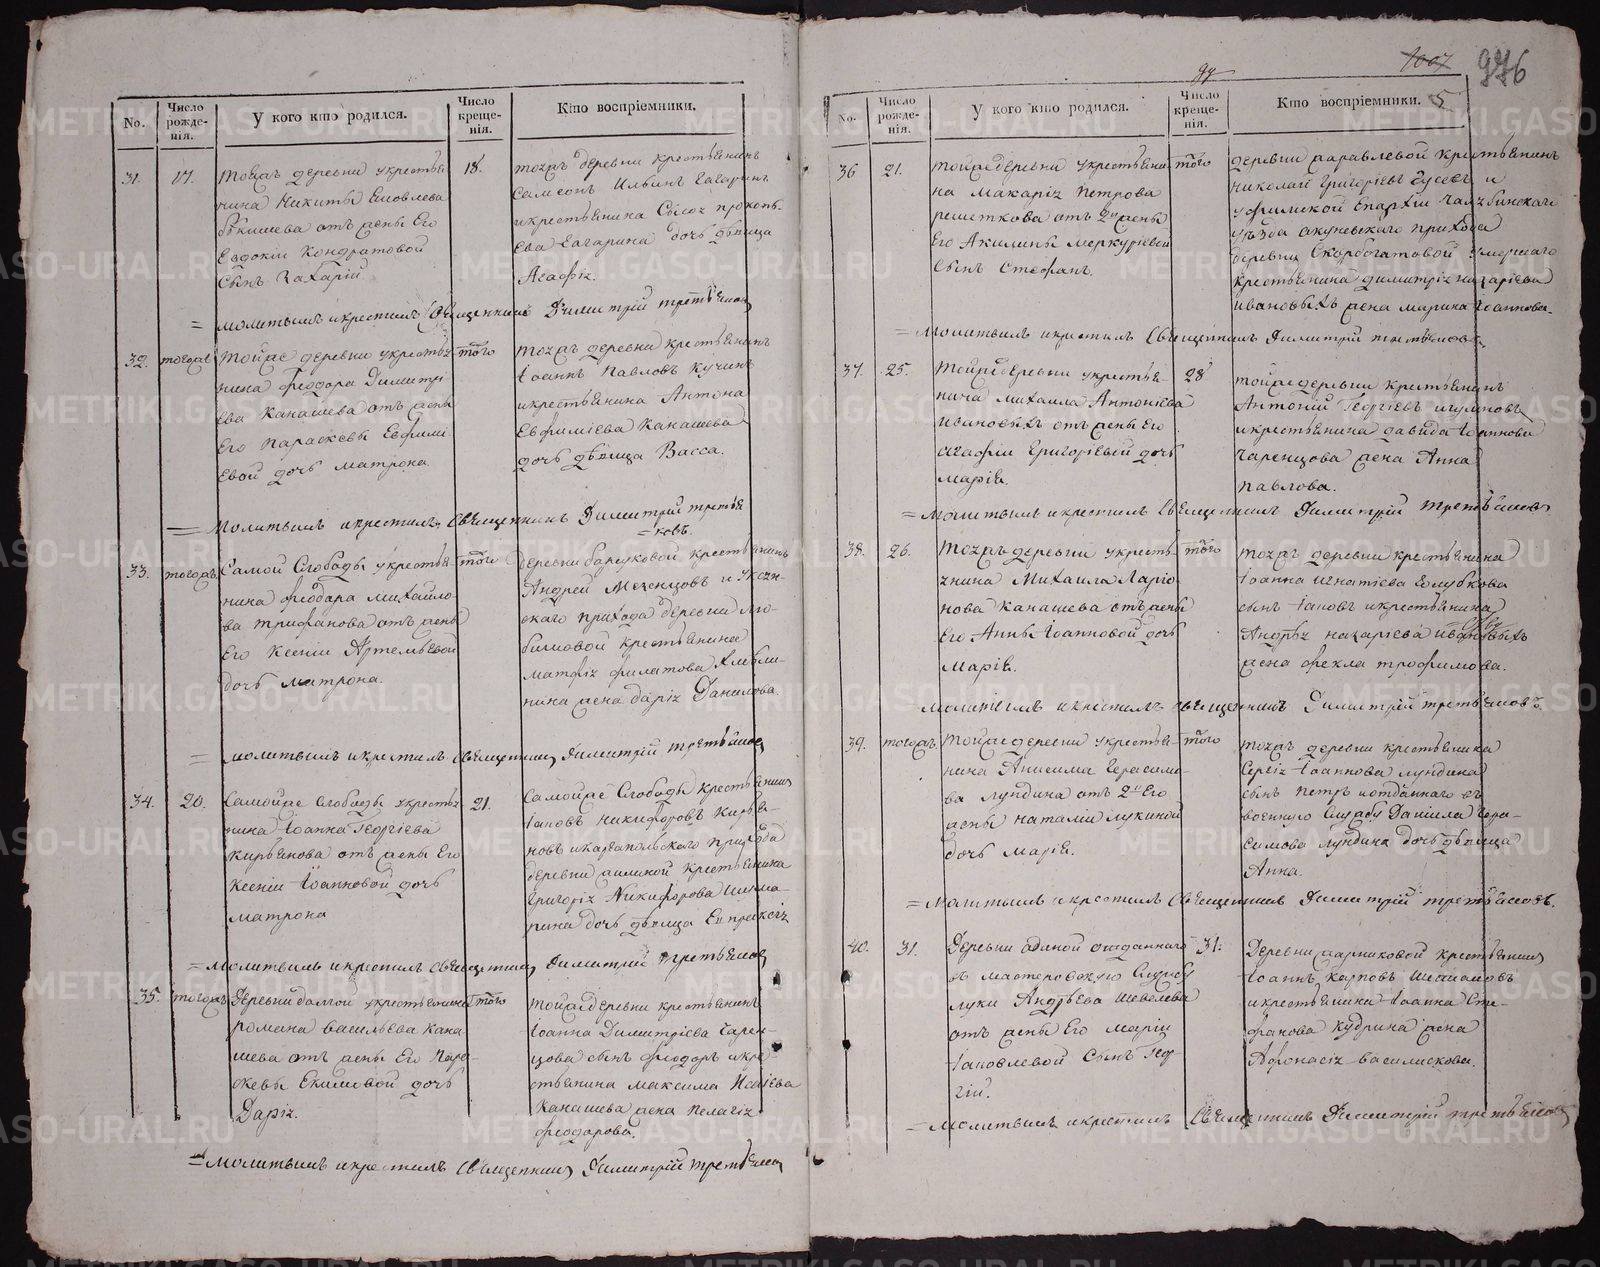 No.
Число рожде-нія.
У кого кто родился.
Число креще-нія.
Кто воспріемники.
31.
17.
тояжъ деревни укрестья
нина Никиты Яковлева
отъ жены Его
Евдокіи Кондратовой
Сынъ Захарій
18.
тояжъ деревни крестьянинъ
Самсонъ Ильинъ Гагаринъ
икрестьянина Сысоя прокопь-
Ева Гагарина дочь дѣвица
Агафія.
= молитвилъ икрестилъ Священникъ Димитрій третьяковъ
32.
тогожъ
тойже деревни укрестья
нина Феодора Димитрі
Ева Канашева отъ жены
Его Параскевы Евфимі
Евой дочь матрона
того
тояжъ деревни крестьянинъ
Іоаннъ Павловъ Кучинъ
икрестьянина Антона
Евфиміева Канашева
дочь дѣвица Васса.
= Молитвилъ икрестилъ Священникъ Димитрій третья
=ковъ.
33.
тогожъ
Самой Слободы укрестья
нина феодора михайло-
ва трифанова отъ жены
Его Ксеніи Артемьевой
дочь матрона.
того
деревни крестьянинъ
Андрей и
скаго прихода деревни
крестьянина
матфія филатова
нина жена дарія Данилова.
= молитвилъ икрестилъ Священникъ Димитрій третьяковъ
34.
20.
Самойже Слободы укрестья
нина Іоанна Георгіева
Кирьянова отъ жены Его
Ксеніи Іоанновой дочь
матрона
21.
Самойже Слободы крестьянинъ
Іаковъ Никифоровъ Кирья-
новъ прихода
деревни крестьянина
Григорія Никифорова
рина дочь дѣвица Евпраксія
= Молитвилъ икрестилъ Священникъ Димитрій третьяковъ
35.
тогожъ
Деревни далгой укрестьянина
романа васильева Кана
шева отъ жены Его Пара-
скевы дочь
Дарія.
того
тойже деревни крестьянинъ
Іоанна Димитріева Гарен-
цова сынъ феодоръ икре
стьянина максима Исаіева
Канашева жена пелагія
феодорова.
= Молитвилъ икрестилъ Священникъ Димитрій третьяковъ
1007
976
5
No.
Число рожде-нія.
У кого кто родился.
Число креще-нія.
Кто воспріемники.
36
21.
тойже деревни укрестьяни
на Макарія Петрова
решеткова отъ 2й жены
Его Акилины Меркуріевой
Сынъ Стефанъ.
того
деревни крестьянинъ
николай Григоріевъ Гусевъ и
уфимской Епархіи Челябинскаго
уѣзда окуневскаго прихода
деревни Скоробогатовой умершаго
крестьянина димитрія назаріева
ивановыхъ жена марина Іоаннова.
= Молитвилъ икрестилъ Священникъ Димитрій третьяковъ
37.
25.
Тойже деревни укрестья-
нина Михаила Антоніева
Ивановыхъ отъ жены Его
Агафіи Григоріевой дочь
Марія.
28
тойже деревни крестьянинъ
Антоній Георгіевъ игумновъ
икрестьянина давида Іоаннова
Гаренцова жена Анна
Павлова.
= Молитвилъ икрестилъ Священникъ Димитрій третьяковъ
38.
26.
тояжъ деревни укресть-
янина Михаила Ларіо
нова Канашева отъ жены
Его Анны Іоанновой дочь
Марія.
того
тояжъ деревни крестьянина
Іоанна игнатіева Голубкова
сынъ Іаковъ икрестьянина
Андрѣя назаріева ивановыхъ
жена фекла трофимова.
молитвилъ икрестилъ священникъ Димитрій третьяковъ
39.
тогожъ
тойже деревни укрестья-
нина Анисима Герасимо-
ва Лундина отъ 2й Его
жены наталіи лукиной
дочь Марія.
того
тояжъ деревни крестьянина
Сергія Іоаннова лундина
сынъ Петръ иотданнаго въ
военную службу Даніила Гера-
симова лундина дочь дѣвица
Анна.
= Молитвилъ икрестилъ Священникъ Димитрій третьяковъ.
40.
31.
Деревни одиной отданнаго
въ мастеровскую службу
луки Андрѣева Шевелева
отъ жены Его Маріи
Іаковлевой Сынъ Геор-
гій.
31.
Деревни крестьянинъ
Іоаннъ Карповъ
икрестьянина Іоанна Сте-
фанова Кудрина жена
Афонасія василискова.
= Молитвилъ икрестилъ Священникъ Димитрій третьяковъ
METRIKI.GASO-URAL.RU